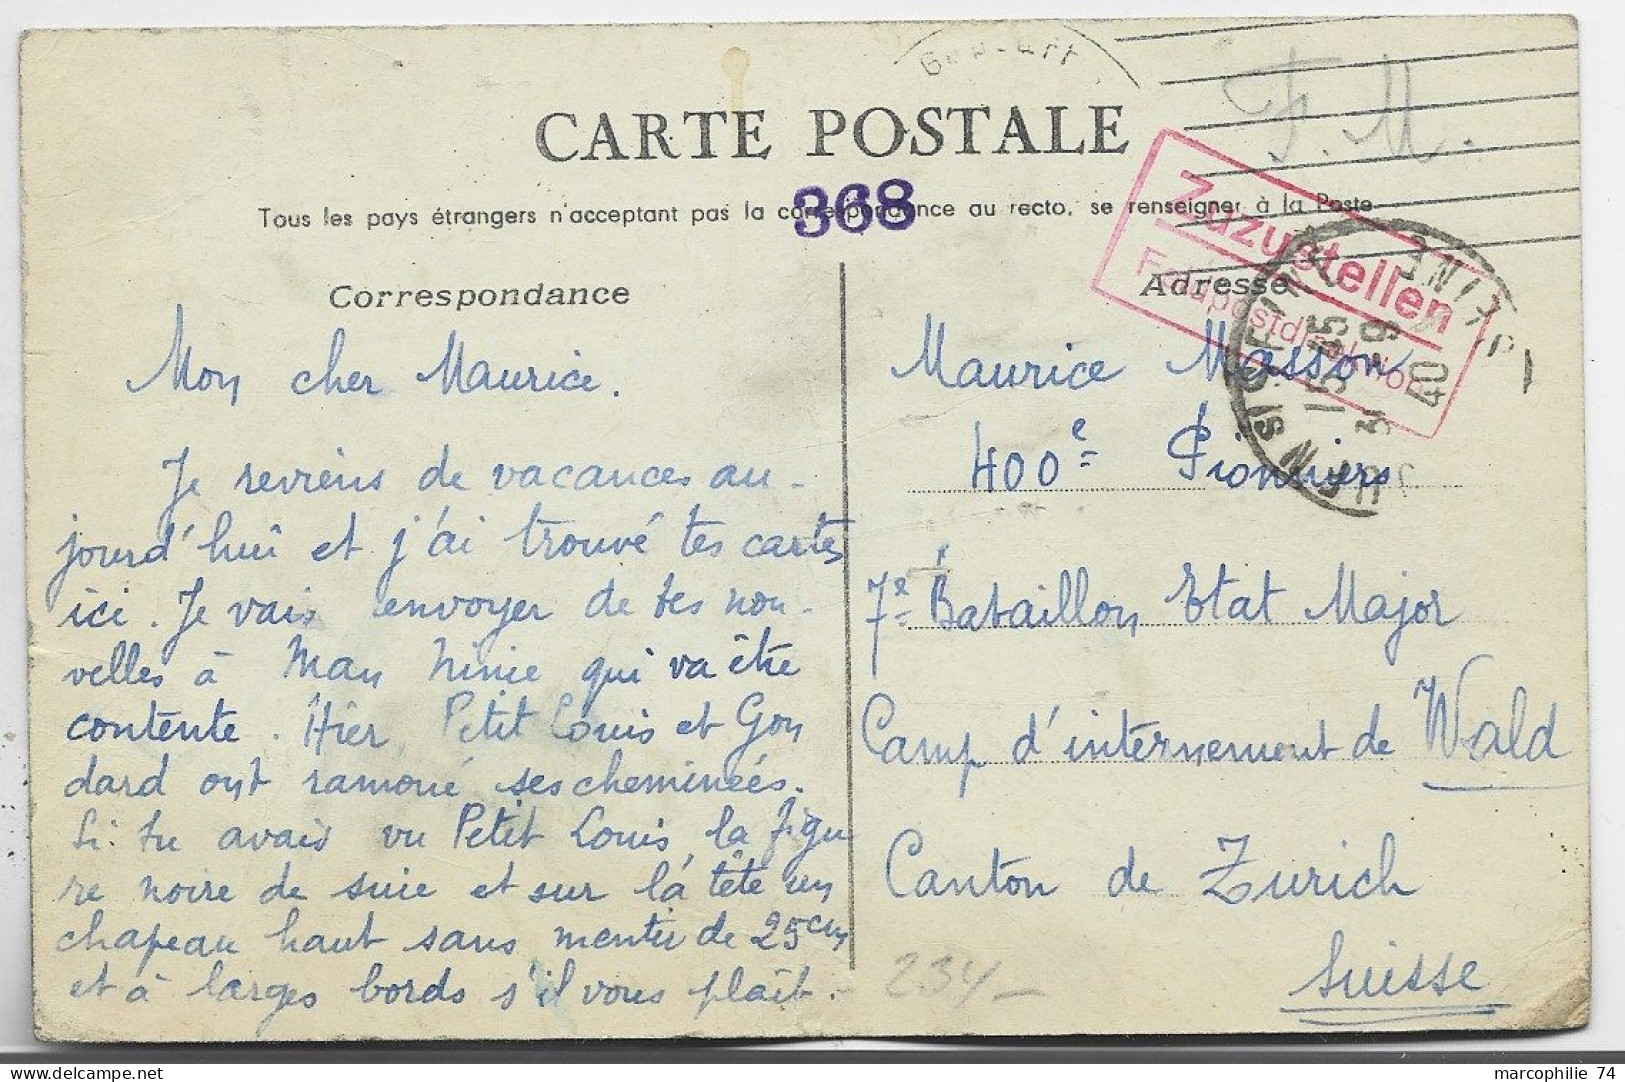 F.M.
CARTE POSTALE
368
Tous les pays étrangers n'acceptent pas la correspondance au recto, se renseigner à la Poste
Zuzustellen
Feldpostdirektion
15 45
3 - 9
40
Correspondance
Adresse
Mon cher Maurice.
Je reviens de vacances au-
jourd'hui et j'ai trouvé tes cartes
ici. Je vais envoyer de tes nou-
velles à Man Ninie qui va être
contente. Hier, Petit Louis et Gon
dard ont ramoné ses cheminées.
Si tu avais vu Petit Louis, la figu
re noire de suie et sur la tête un
chapeau haut sans mentir de 25cm
et à larges bords s'il vous plaît.
Maurice Masson
400e Pionniers
7e Bataillon Etat Major
Camp d'internement de Wald
Canton de Zurich
Suisse
234-
marcophilie 74